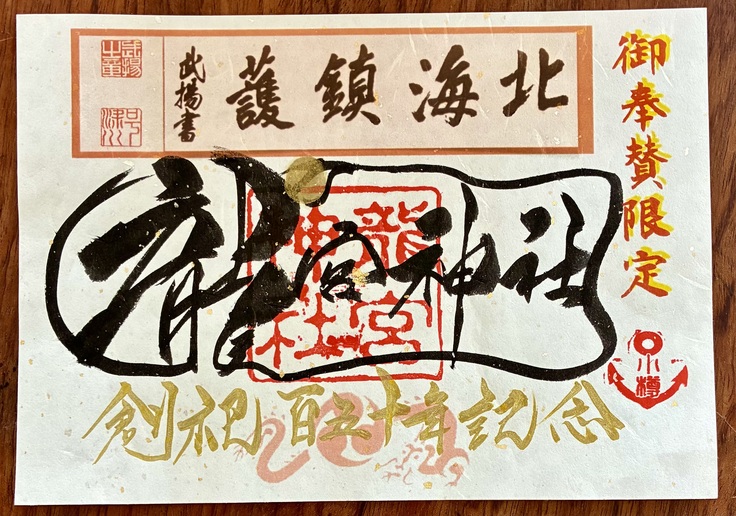 北海鎮護
武揚書
御奉賛限定
龍宮神社
龍宮神社
創祀百五十年記念
小樽